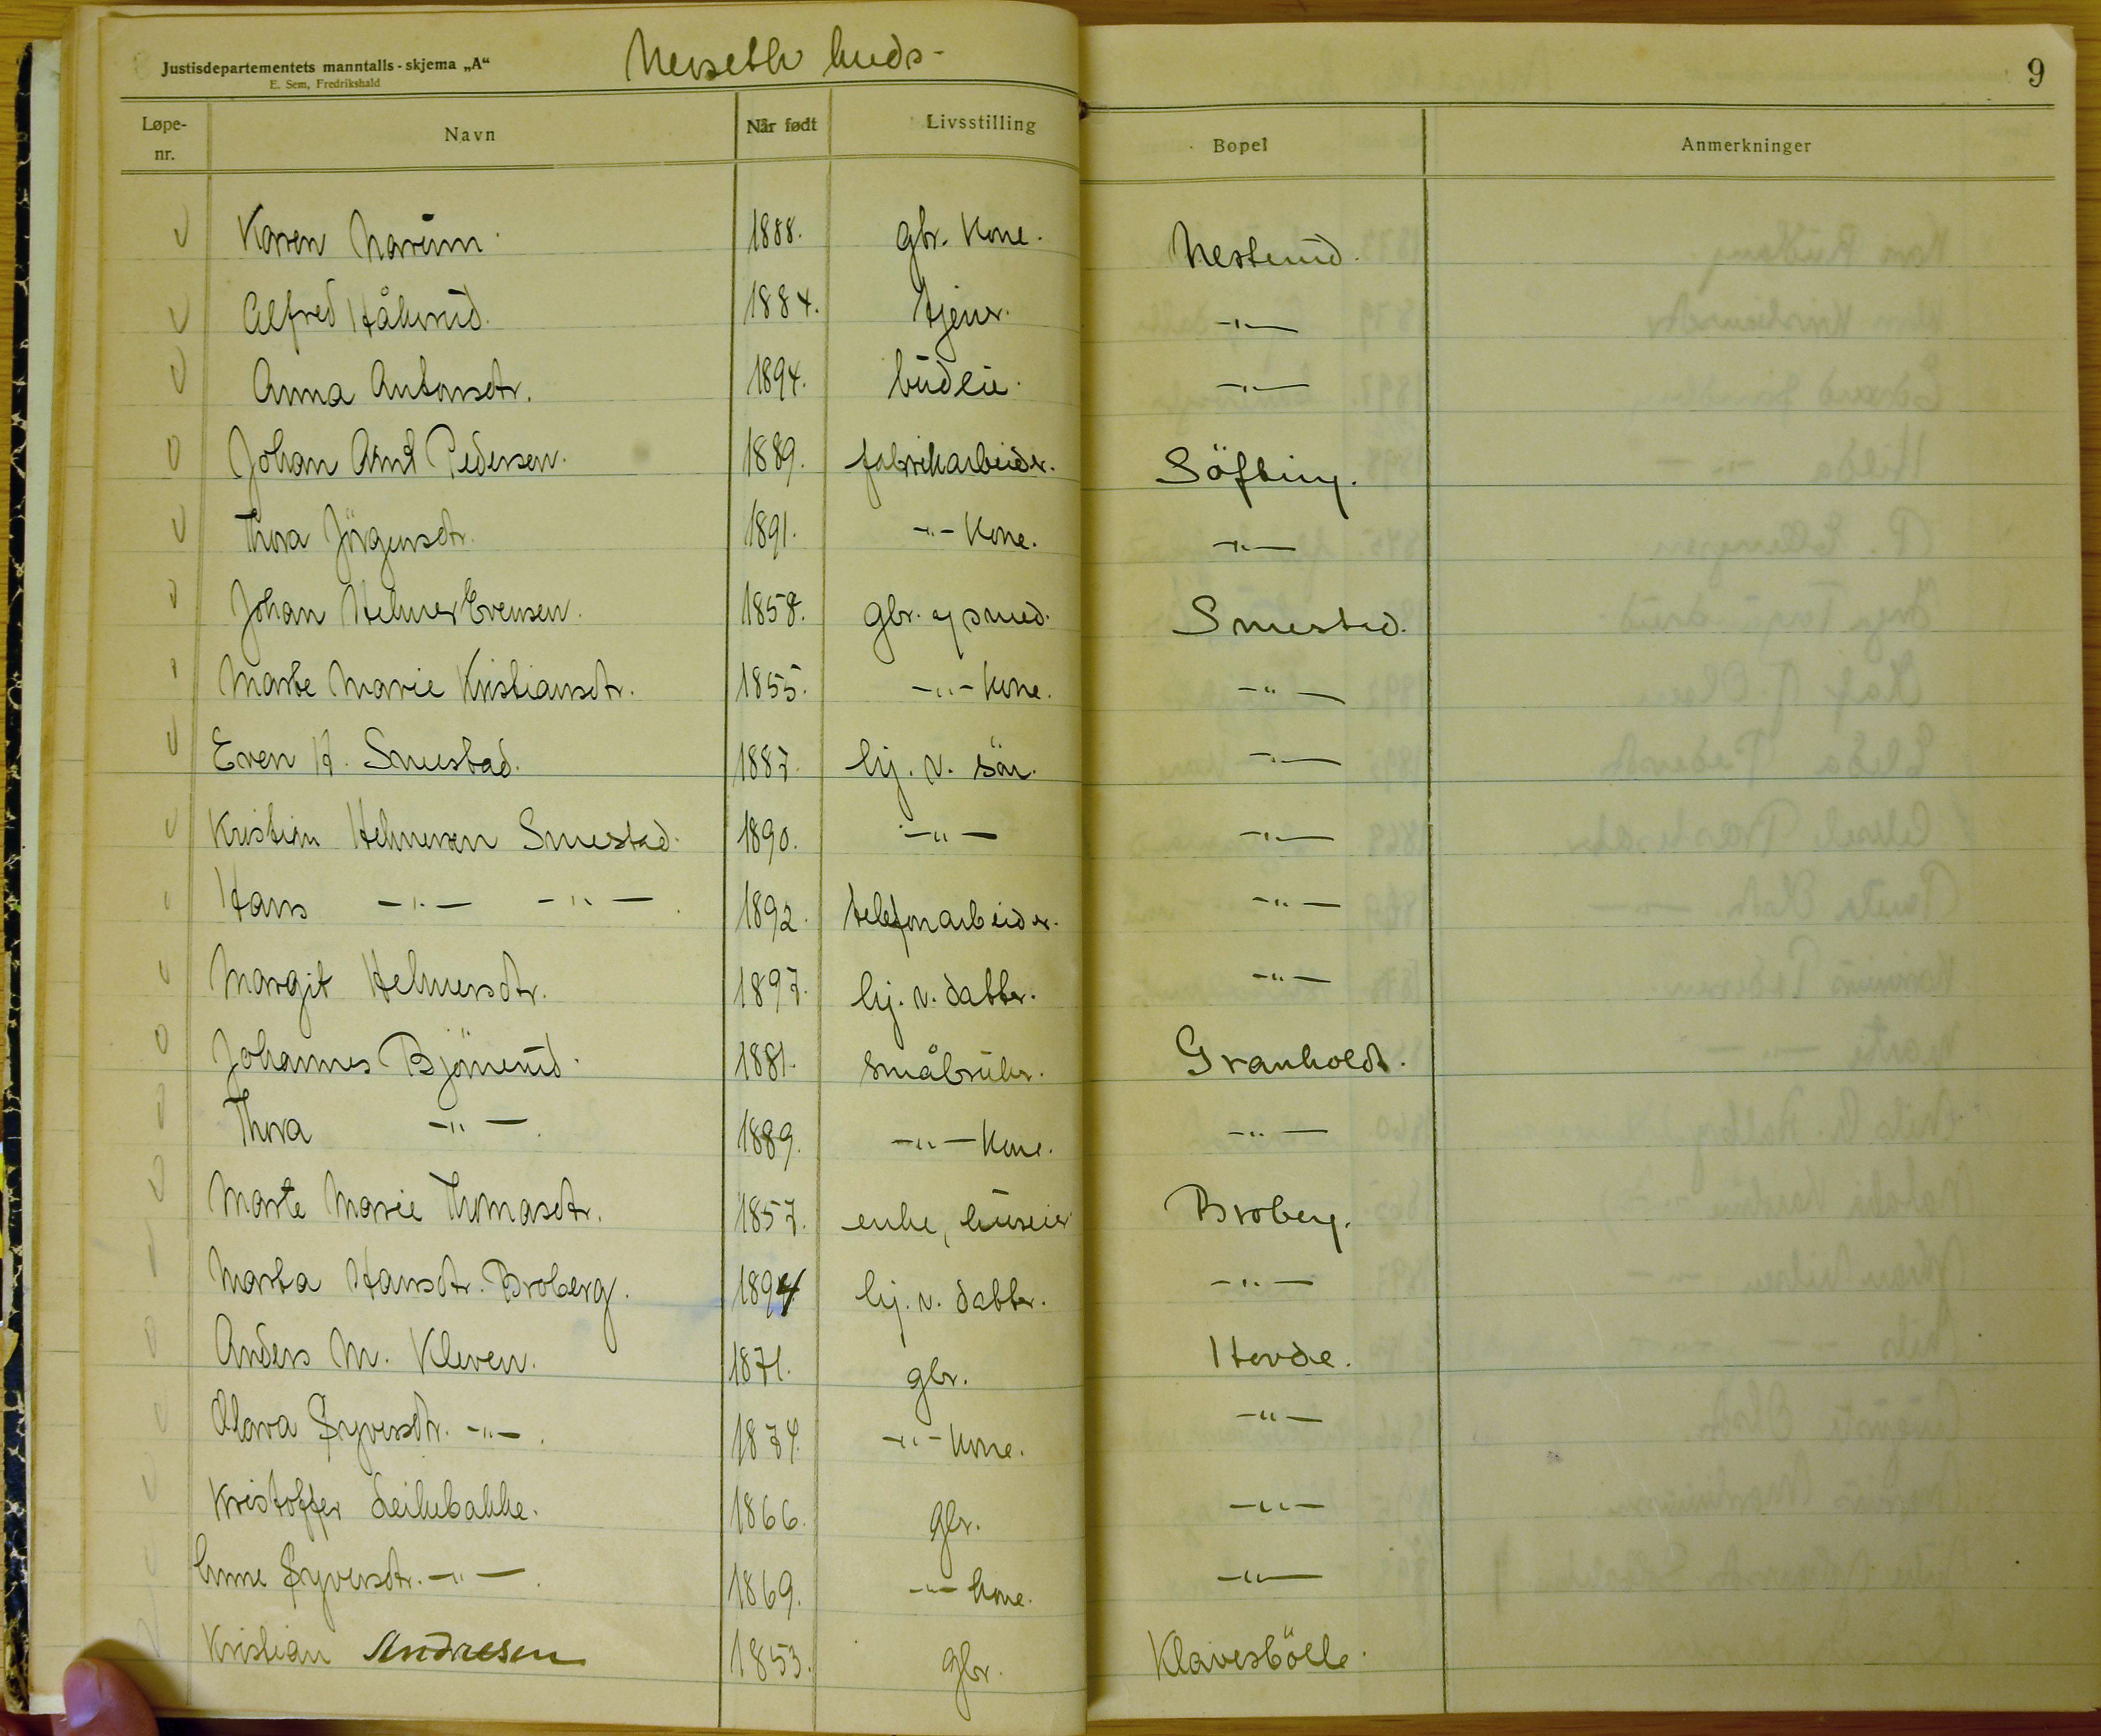 Justisdepartementets manntalls-skjema „A“
E. Sem, Fredrikshald
9
Løpe-nr. Navn Når født Livsstilling Bopel Anmerkninger
Karen Narum. 1888. gbr. Kone. Nesteud.
Alfred Håkerud. 1884. tjener. -"-
Anna Antonsdtr. 1894. budeie. -"-
Johan Arnt Pedersen. 1889. fabrikarbeider. Söfting.
Thora Jörgensdtr. 1891. -"- Kone. -"-
Johan Helmer Evensen. 1858. gbr. og smed. Smestad.
Marte Marie Kristiansdtr. 1855. -"- kone. -"-
Even H. Smestad. 1887. hj. v. sön. -"-
Kristian Helmersen Smestad. 1890. -"- -"-
Hans -"- -"-. 1892. telefonarbeider. -"-
Margit Helmersdtr. 1897. hj. v. datter. -"-
Johannes Björnerud. 1881. småbruker. Granholdt.
Thora -"-. 1889. -"- kone. -"-
Marte Marie Thomasdtr. 1857. enke, huseier Broberg.
Marta Hansdtr. Broberg. 1894 hj. v. datter. -"-
Anders M. Kleven. 1871. gbr. Hovde.
Olava Syversdtr. -"-. 1874. -"- kone. -"-
Kristoffer Leikebakke. 1866. gbr. -"-
Anne Syversdtr. -"-. 1869. -"- kone. -"-
Kristian Andresen 1853. gbr. Klavesbölle.